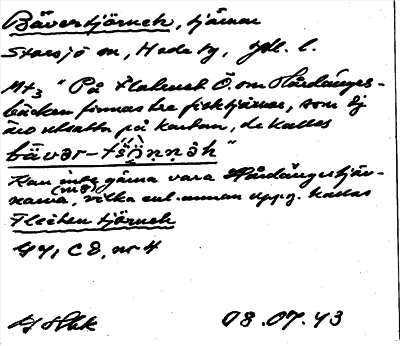 Bävertjörnek, tjärnar
Storsjö sn, Hede tg, Jtl. l.
Mt3 "På flaknet Ö. om Hårdänges-
bäcken finnas tre fisktjärnar, som ej
äro utsatta på kartan, de kallas
bävər-
Kan inte gärna vara Hårdängestjär-
narna, vilka enl. annan uppg. kallas
tjörnek
C8, nr 4
08.07.43